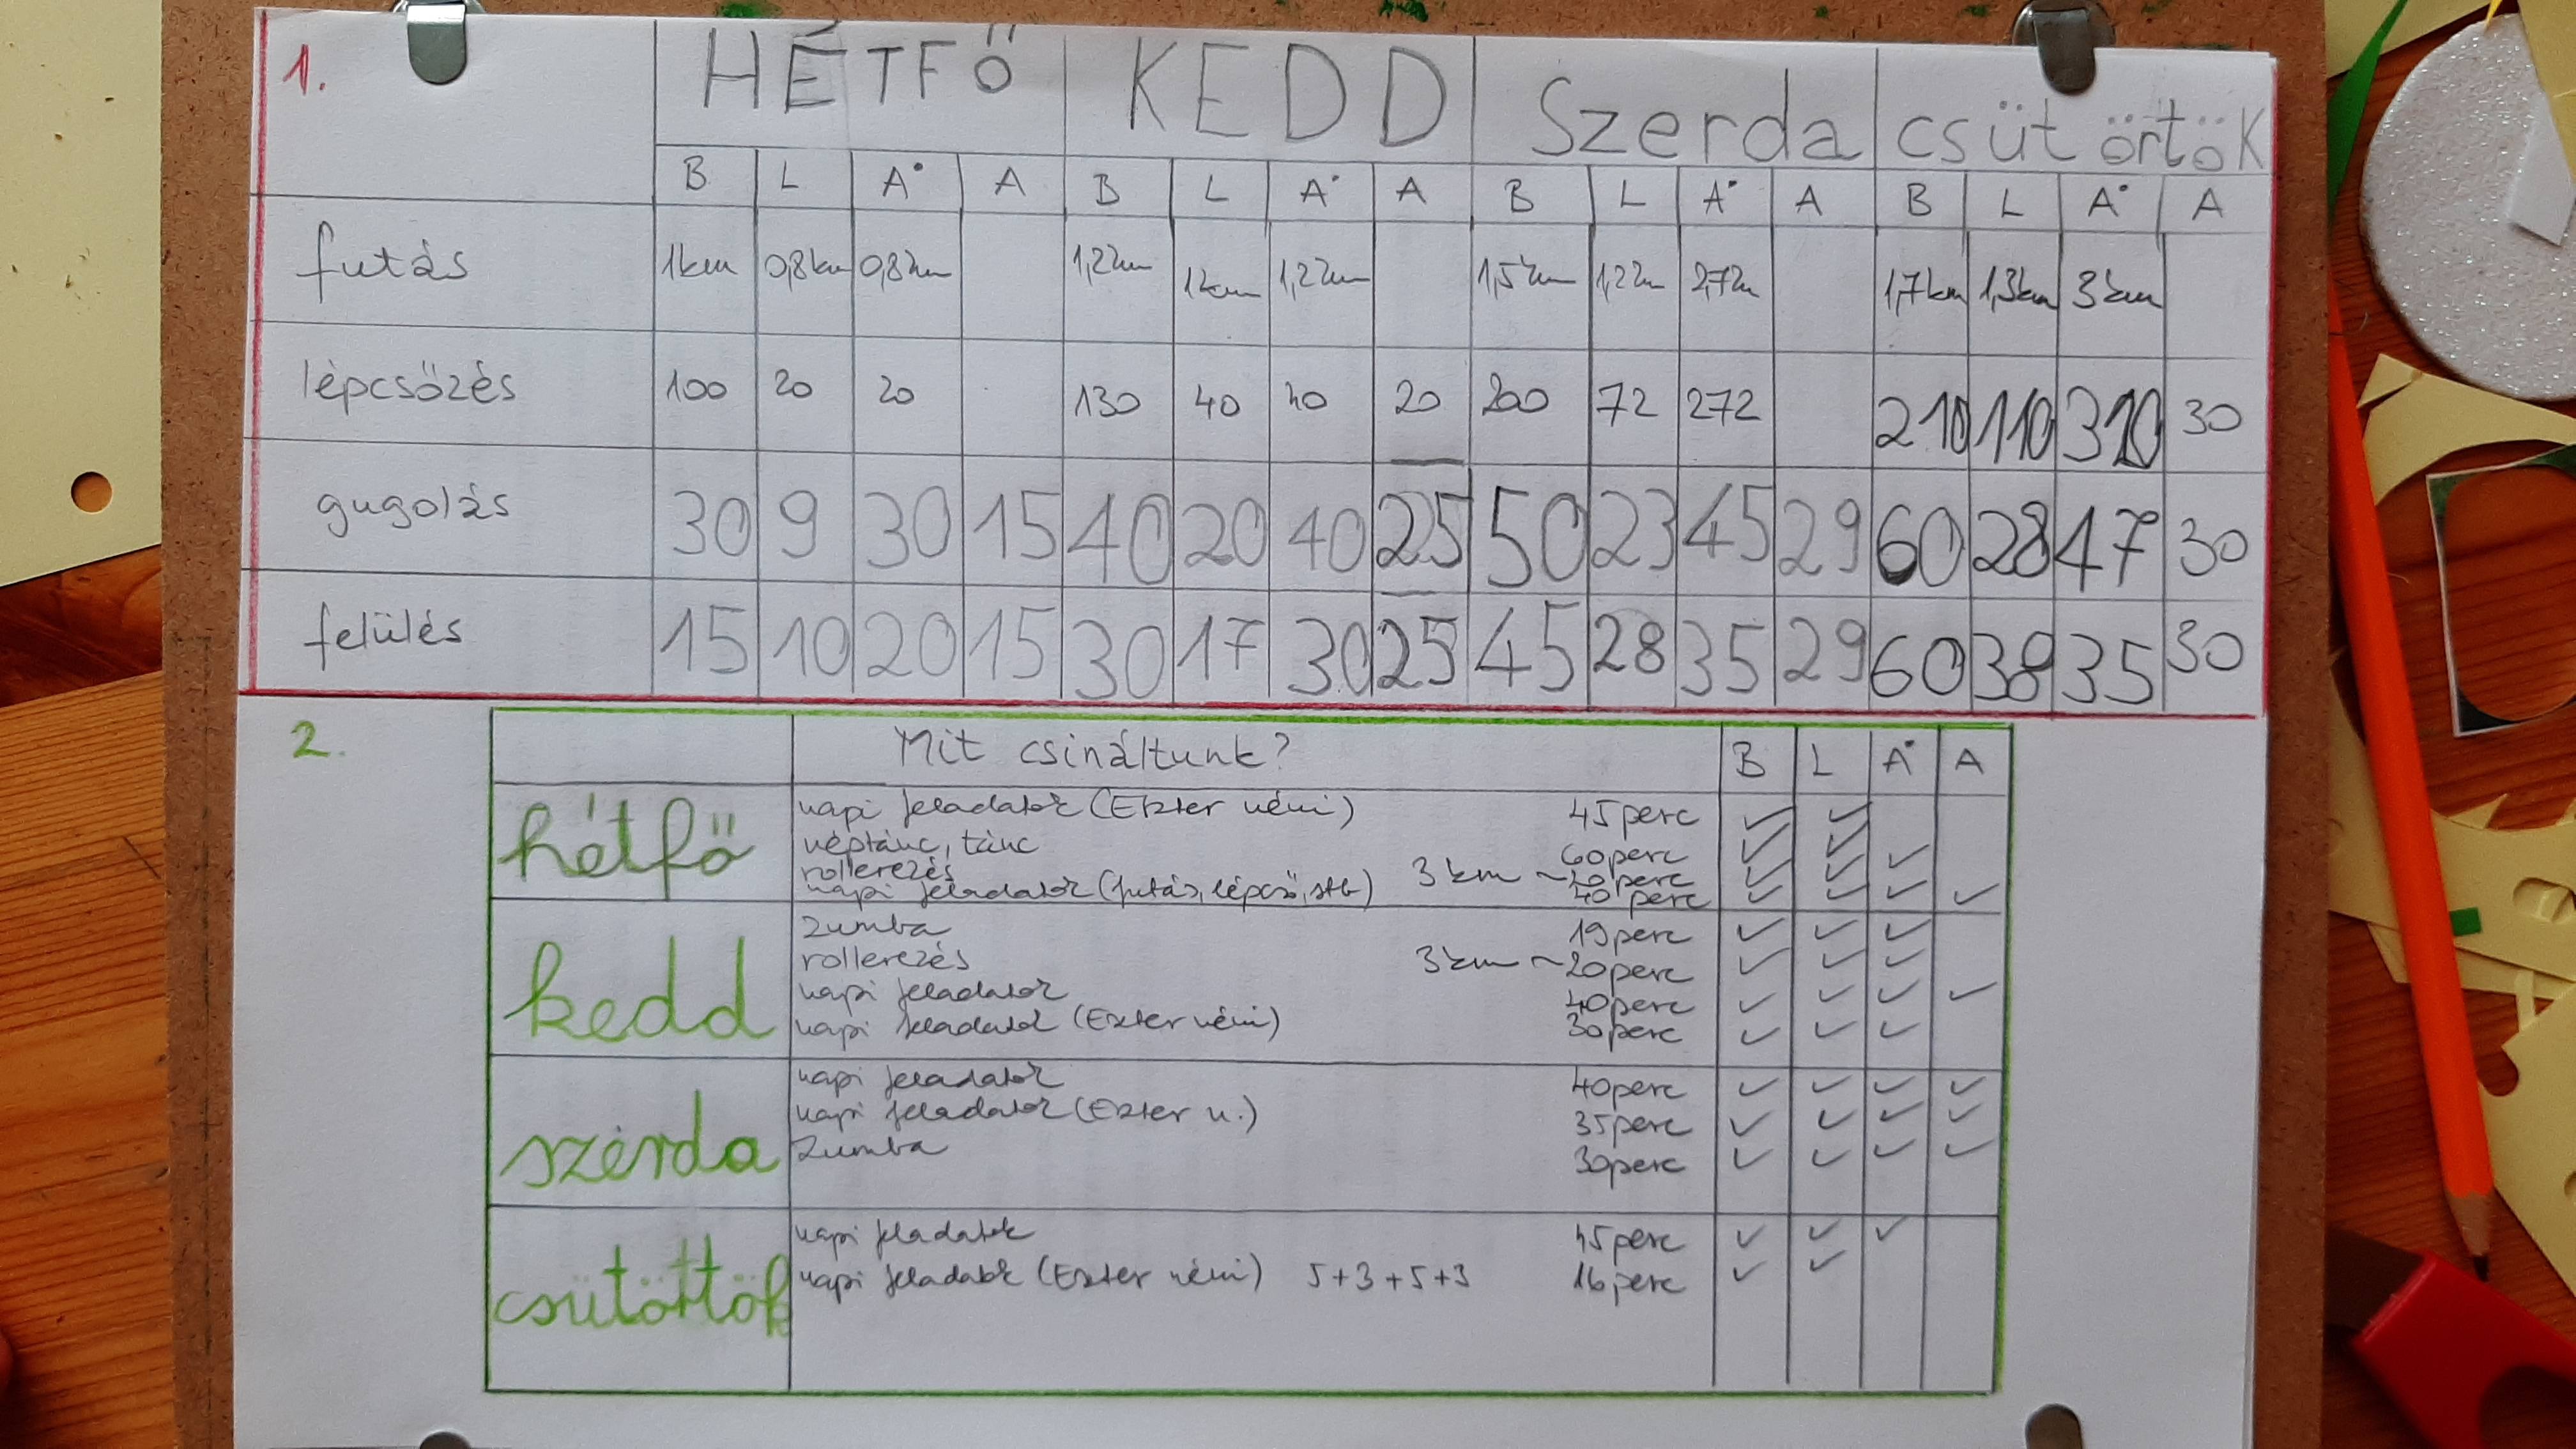 1. HÉTFŐ KEDD Szerda csütörtök
B L A• A B L A• A B L A• A B L A• A
futás 1km 0,8km 0,8km 1,2km 1km 1,2km 1,5km 1,2km 2,7km 1,7km 1,3km 3km
lépcsőzés 100 20 20 130 40 40 20 200 72 272 210 110 310 30
gugolás 30 9 30 15 40 20 40 25 50 23 45 29 60 28 47 30
felülés 15 10 20 15 30 17 30 25 45 28 35 29 60 38 35 30
2. Mit csináltunk? B L A• A
hétfő
napi feladatok (Eszter néni) 45perc ✓ ✓
néptánc, tánc 60perc ✓ ✓
rollerezés 3 km ~20perc ✓ ✓ ✓
napi feladatok (futás, lépcső, stb) 40 perc ✓ ✓ ✓ ✓
kedd
Zumba 19perc ✓ ✓ ✓
rollerezés 3km ~20perc ✓ ✓ ✓
napi feladatok 40perc ✓ ✓ ✓ ✓
napi feladatok (Eszter néni) 30perc ✓ ✓ ✓
szerda
napi feladatok 40perc ✓ ✓ ✓ ✓
napi feladatok (Eszter n.) 35perc ✓ ✓ ✓ ✓
Zumba 30perc ✓ ✓ ✓ ✓
csütöttök
napi feladatok 45perc ✓ ✓ ✓
napi feladatok (Eszter néni) 5+3+5+3 16perc ✓ ✓